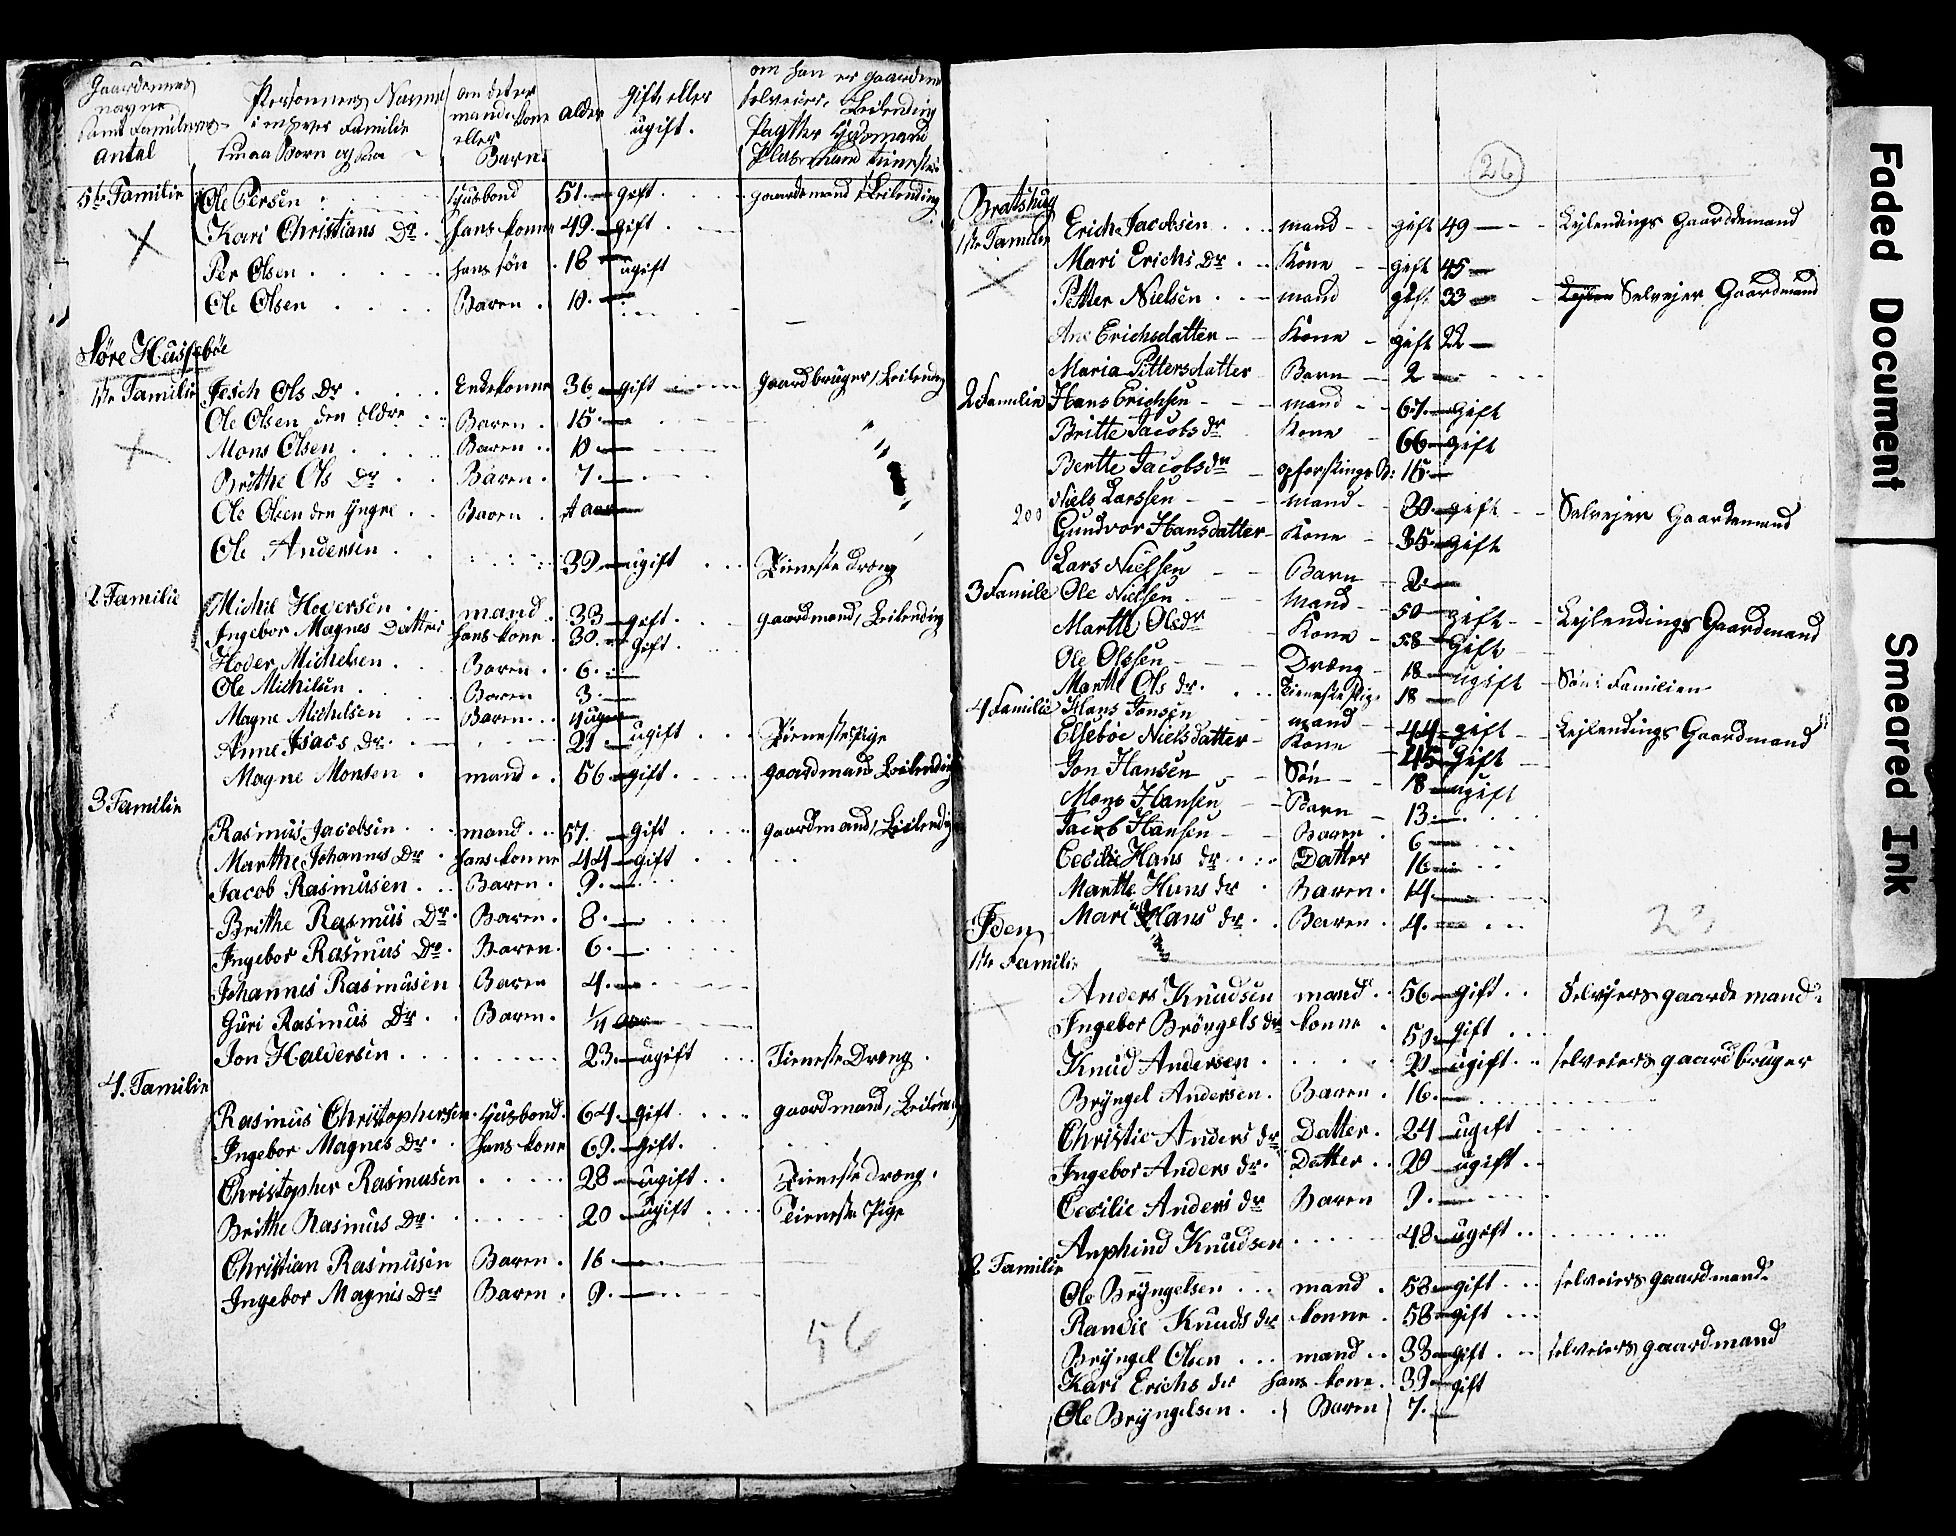 Gaardennes navne samt Familiens antal | Personnernes Navne i enhver Familie smaa Børn og saa | om det er mand, kone eller Barn. | alder | Gift eller ugift. | om han er gaardens selveier, Leilending Pagtter Huusmand Pladsmand tieneste
5te Familie Ole Persen Husbond 51 gift gaardemand, Leilending
Kari Christians Dr. hans konne 49 gift
Per Olsen hans søn 18 ugift
Ole Olsen Baren 10
Søre Husebøe
1ste Familie Ols Dr Enkekonne 36 gift gaardbruger, Leilending
Ole Olsen den eldre Baren 15
Mons Olsen Baren 10
Brithe Ols Dr Baren 7
Ole Olsen den Yngre Baren
Ole Andersen 39 ugift Tieneste dreng
2 Familie Michil Hoversen mand 33 gift gaardmand, Leilending
Ingebor Magnes Datter hans kone 30 gift
Hoder Michelsen Baren 6
Ole Michilsen Baren 3
Magne Michelsen Baren
Anne Isacs Dr. 21 ugift Tienestepige
Magne Monsen mand 56 gift gaardmand Leilending
3 Familie
Rasmus Jacobsen mand 57 gift gaardmand, Leilending
Marthe Johannes Dr hans konne 44 gift
Jacob Rasmusen Baren 9
Brithe Rasmus Dr Baren 8
Ingebor Rasmus Dr Baren 6
Johannes Rasmusen Baren 4
Guri Rasmus Dr Baren 1/4 aar
Jon Haldersen 23 ugift Tieneste Dreng
4. Familie
Rasmus Christophersen Husbond 64 gift gaardmand, Leilending
Ingebor Magnes Dr hans kone 69 gift
Christopher Rasmusen 28 ugift Tieneste dreng
Brithe Rasmus Dr 20 ugift Tieneste Pige
Christian Rasmusen Baren 16
Ingebor Magnis Dr Baren 9
56
26
Bratshug
1ste Familie Erich Jacobsen mand gift 49 Lejlendings Gaarddemand
Mari Erichs Dr Kone gift 45
Petter Nielsen mand gift 33 Selvejer Gaardmand
Ane Erichsdatter Kone gift 22
Maria Pittersdatter Barn 2
2 Familie Hans Erichsen mand 67 gift
Britte Jacobs dr Kone 66 gift
Berthe Jacobs dr opfostrings B: 15
Niels Larssen mand 30 gift Selvejer Gaardemand
200 Gundvor Hansdatter Kone 35 gift
Lars Nielsen Barn 2
3 Famile Ole Nielsen Mand 50 gift Lejlendings Gaardmand
Marthe Ols dr Kone 58 gift
Ole Olssen Dræng 18 ugift Søn i Familien
Marthe Ols dr. Tienestepig 18
4 Familie Hans Jonsen mand 44 gift Lejlendings Gaardmand
Elsebøe Nielsdatter Kone 45 gift
Jon Hansen Søn 18 ugift
Mons Hansen Barn 13
Jacob Hansen Baren 6
Cecilie Hans dr Datter 16
Marthe Hans dr Baren 14
Mari Hans dr Baren 4
23
Iden
1ste Familie
Anders Knudsen mand 56 gift Selveiers gaardemand
Ingebor Brøngels dr konne 50 gift
Knud Andersen ugift selveiers gaardbruger
Bryngel Andersen Baren 16
Christie Anders dr Datter 24 ugift
Ingebor Anders dr. Datter 20 ugift
Cecilie Anders dr Baren 9
Anphind Knudsen 48 ugift
2 Familie
Ole Bryngelsen mand 58 gift selveiers gaardmand
Randie Knuds dr konne 58 gift
Bryngel Olsen mand 33 gift selveiers gaardmand
Kari Erichs dr hans kone 39 gift
Ole Bryngelsen Baren 7
Faded Document
Smeared Ink